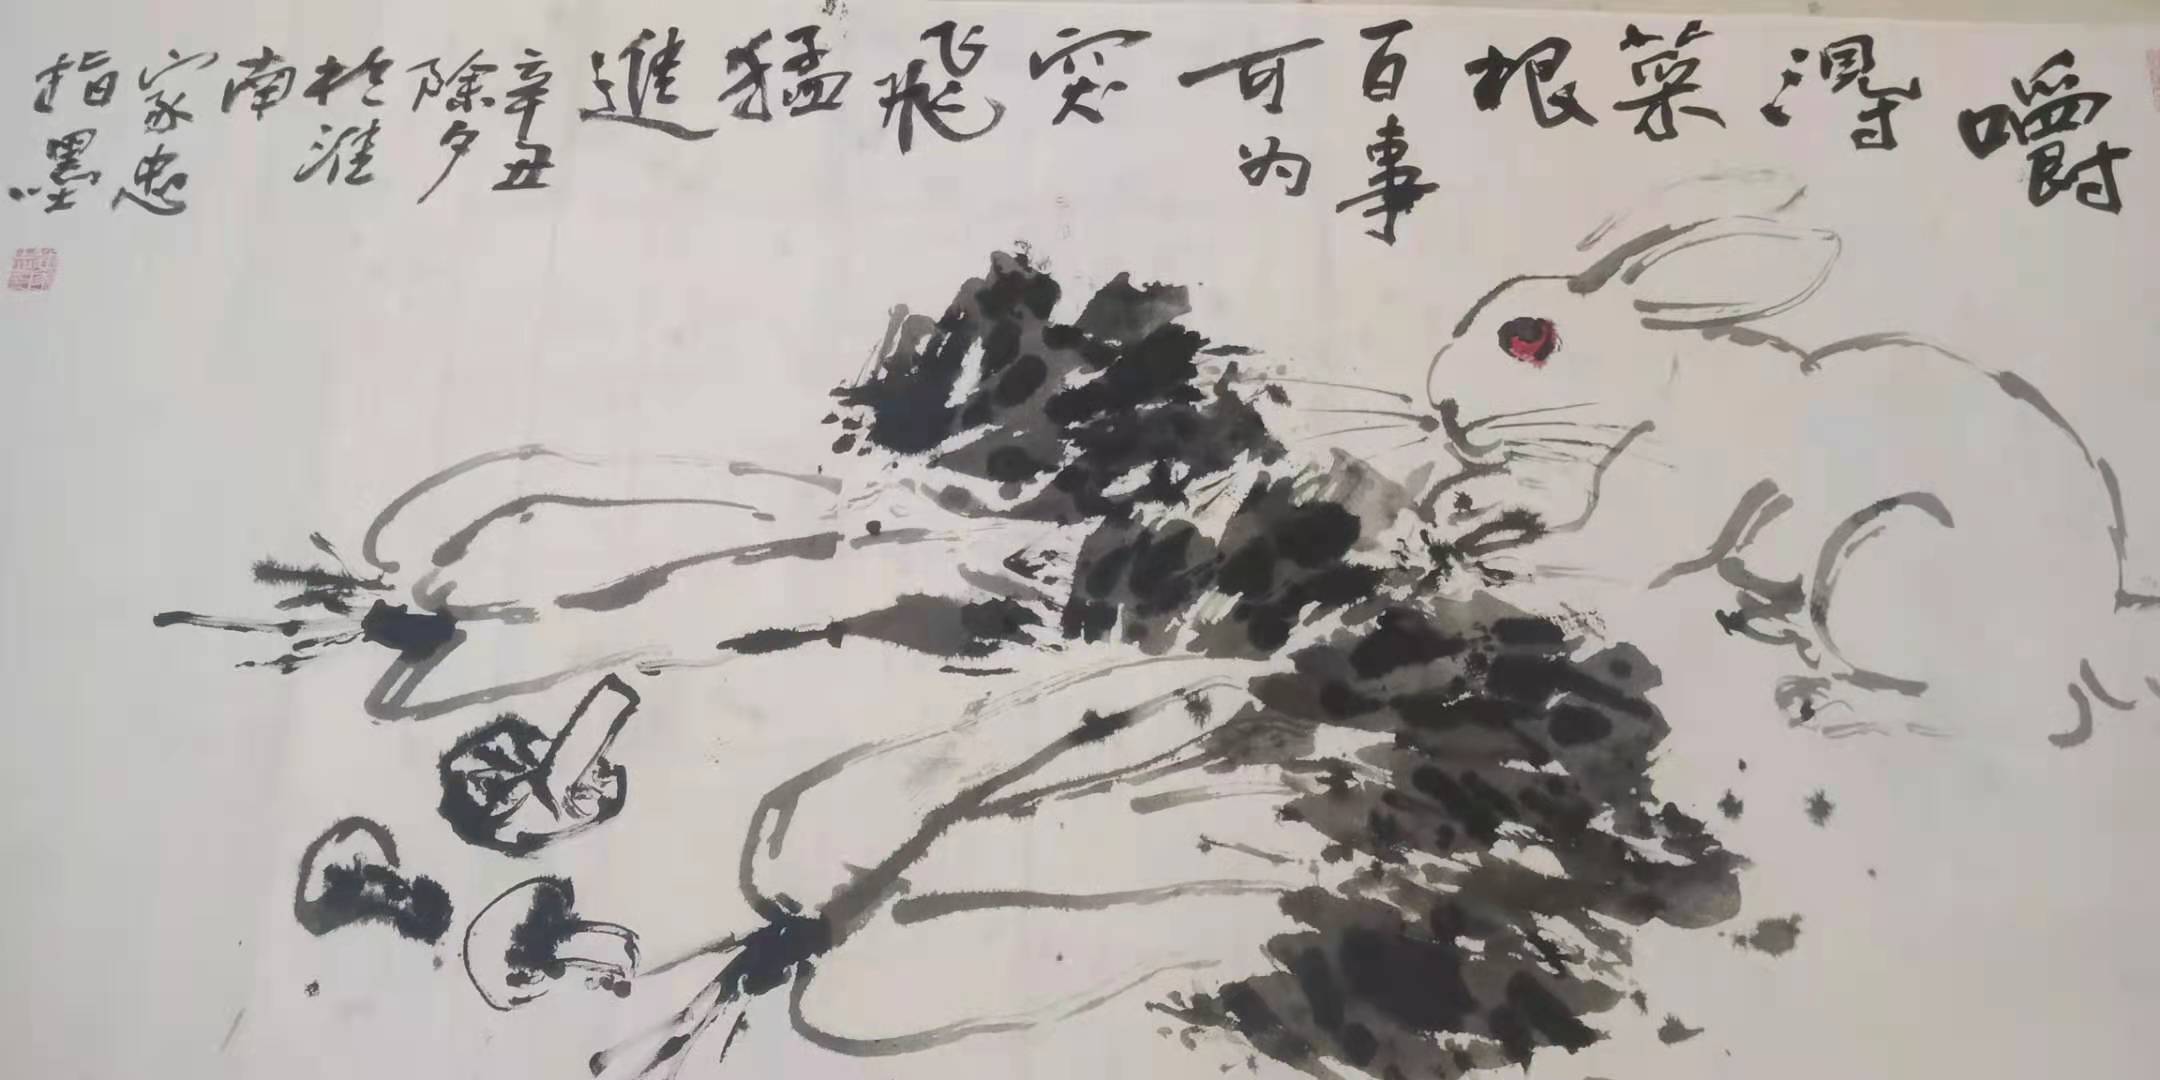 嚼
得
菜
根
百事
可为
突
飛
猛
進
辛丑
除夕
於淮
南
家忠
指墨